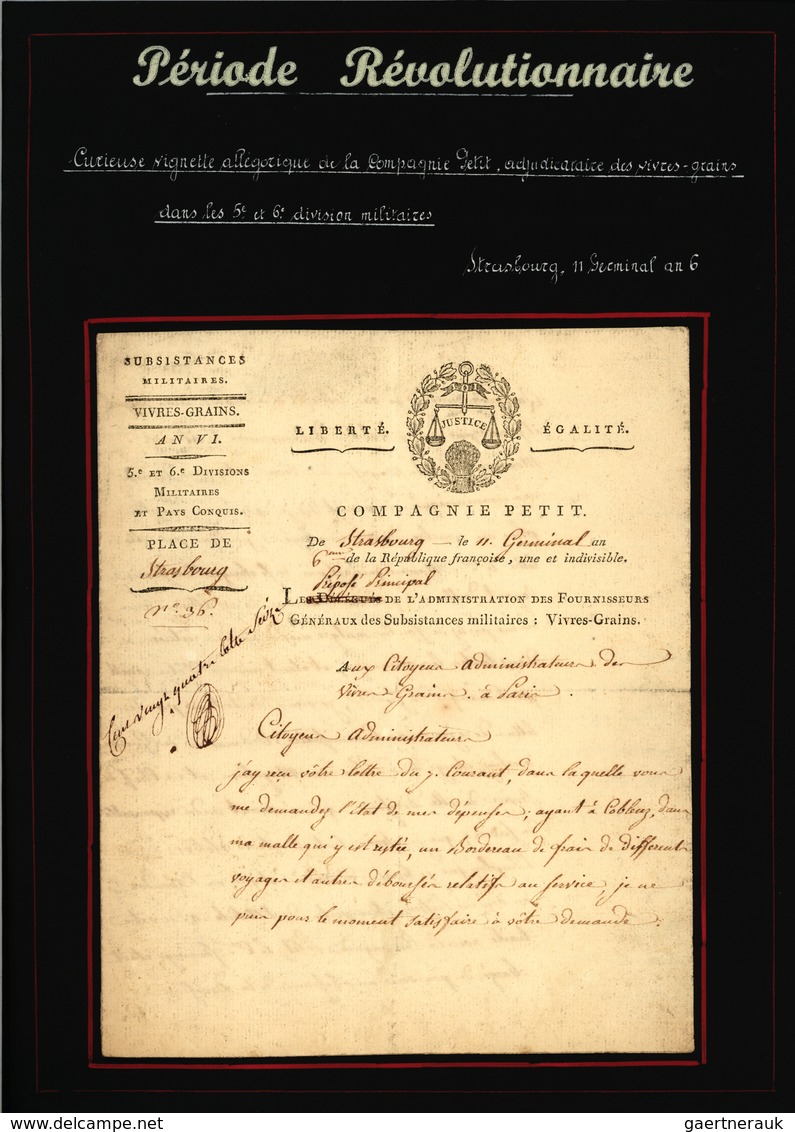 Période Révolutionnaire
Curieuse vignette allégorique de la Compagnie Petit, adjudicataire des vivres-grains
dans les 5e et 6e division militaires
Strasbourg, 11 Germinal an 6
SUBSISTANCES
MILITAIRES.
VIVRES-GRAINS.
AN VI.
5.e ET 6.e DIVISIONS
MILITAIRES
ET PAYS CONQUIS.
PLACE DE
Strasbourg
N.o 36.
LIBERTÉ.
JUSTICE
ÉGALITÉ.
COMPAGNIE PETIT.
De Strasbourg le 11. Germinal an
6 de la République françoise, une et indivisible.
Préposé Principal
LES DÉLÉGUÉS DE L'ADMINISTRATION DES FOURNISSEURS
GÉNÉRAUX des Subsistances militaires : Vivres-Grains.
Cent vingt quatre
Aux Citoyens Administrateurs des
Vivres Grains. à Paris.
Citoyens Administrateurs
j'ay reçu vôtre lettre du 7. Courant, dans la quelle vous
me demandez l'Etat de mes dépenses; ayant à Coblenz, dans
ma malle qui y est restée, un Bordereau de frais de différents
voyages et autres déboursés relatifs au service, je ne
puis pour le moment satisfaire à vôtre demande.
gaertnerauk
delcampe.net